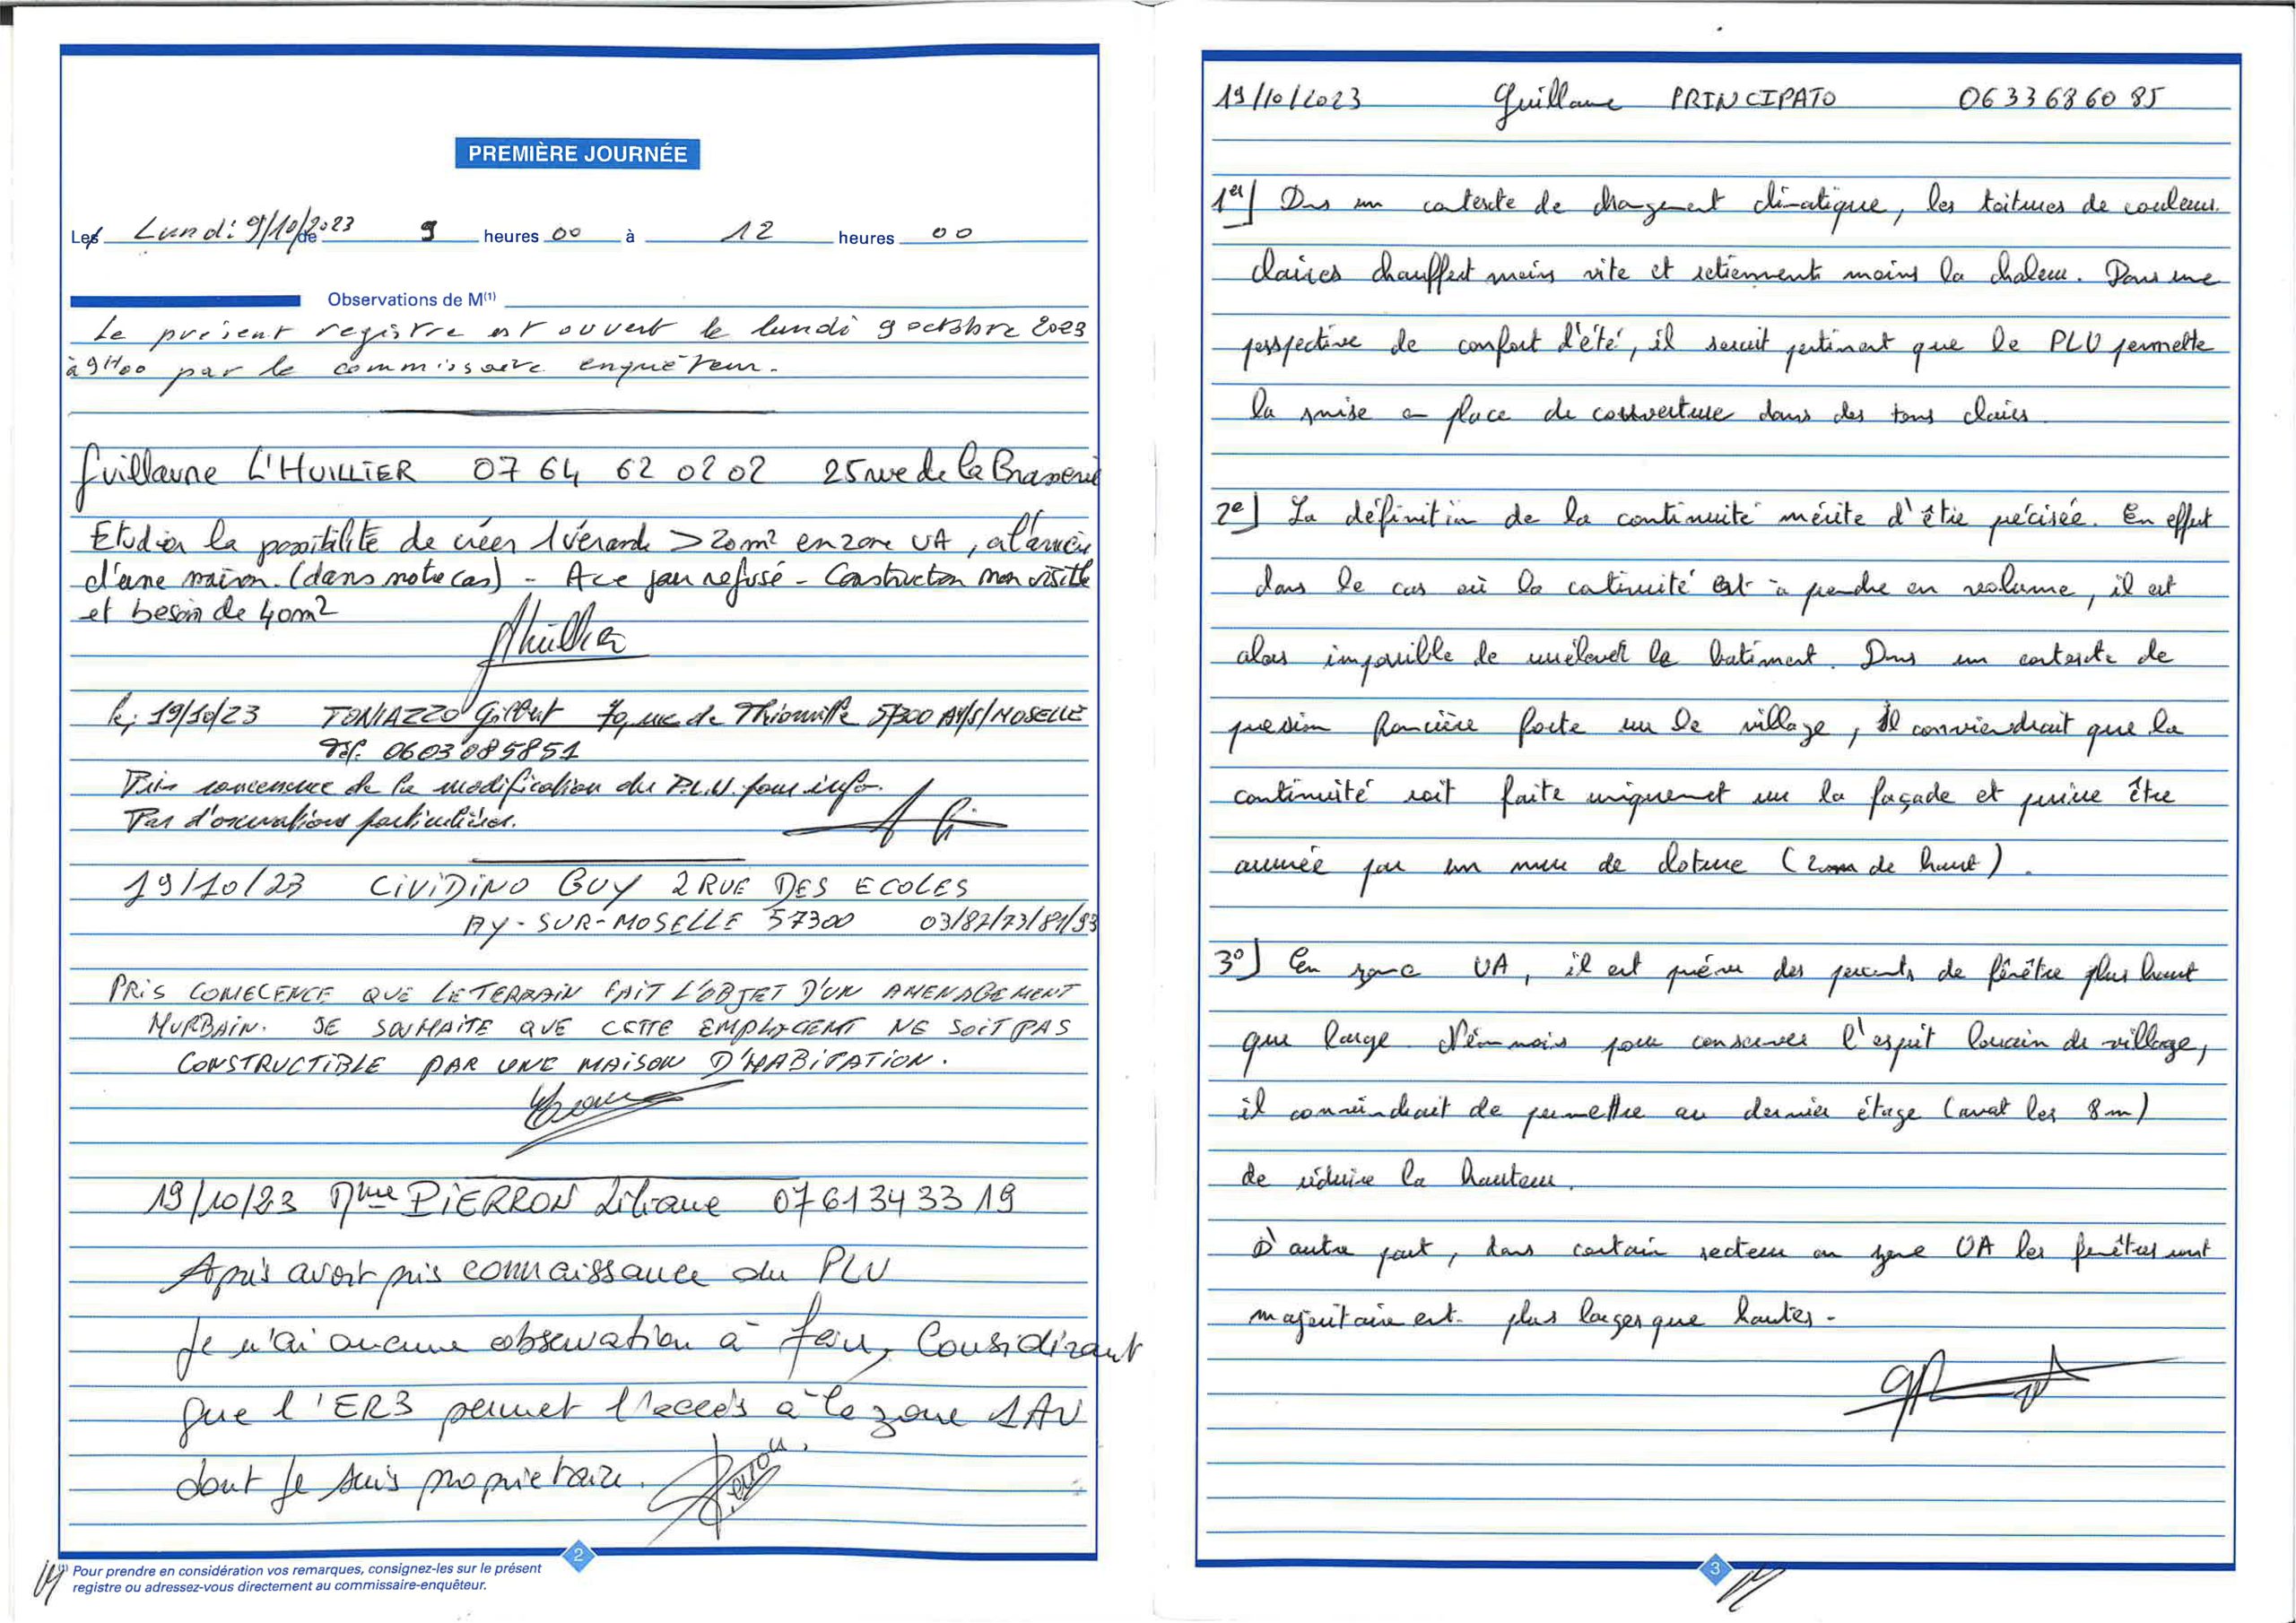 PREMIÈRE JOURNÉE
Les Lundi 9/10/2023 de 9 heures 00 à 12 heures 00
Observations de M(1)
Le présent registre est ouvert le lundi 9 octobre 2023
à 9H00 par le commissaire enquêteur.
Guillaume L'HUILLIER 07 64 62 02 02 25 rue de la Brasserie
Etudier la possibilité de créer 1 véranda > 20m² en zone UA, à l'arrière
d'une maison. (dans notre cas) - Ace jour refusé - Construction non visible
et besoin de 40m²
le; 19/10/23 TONIAZZO Gilbert 70, rue de Thionville 57300 AY/S/MOSELLE
Tél. 0603085851
Pris connaissance de la modification du P.L.U. pour info.
Pas d'observations particulières.
19/10/23 CIVIDINO GUY 2 RUE DES ECOLES
AY-SUR-MOSELLE 57300 03/82/73/81/93
PRIS CONECENCE QUE LE TERRAIN FAIT L'OBJET D'UN AMENAGEMENT
MURBAIN. JE SOUHAITE QUE CETTE EMPLOCEMT NE SOIT PAS
CONSTRUCTIBLE PAR UNE MAISON D'HABITATION.
19/10/23 Mme PIERRON Liliane 07 61 34 33 19
Après avoir pris connaissance du PLU
Je n'ai aucune observation à faire, Considérant
que l'ER3 permet l'accès à la zone 1AU
dont je suis propriétaire.
2
(1) Pour prendre en considération vos remarques, consignez-les sur le présent
registre ou adressez-vous directement au commissaire-enquêteur.
19/10/2023 Guillaume PRINCIPATO 06 33 68 60 85
1er) Dans un contexte de changement climatique, les toitures de couleurs
claires chauffent moins vite et retiennent moins la chaleur. Dans une
perspective de confort d'été, il serait pertinent que le PLU permette
la mise en place de couverture dans des tons clairs
2e) La définition de la continuité mérite d'être précisée. En effet
dans le cas où la continuité est à prendre en volume, il est
alors impossible de surélever le batiment. Dans un contexte de
pression foncière forte sur le village, il conviendrait que la
continuité soit faite uniquement sur la façade et puisse être
assurée par un mur de cloture (2m de haut).
3°) En zone UA, il est prévu des percements de fenêtre plus haut
que large. Néanmoins pour conserver l'esprit lorrain de village,
il conviendrait de permettre au dernier étage (avant les 8m)
de réduire la hauteur.
D'autre part, dans certain secteur en zone UA les fenêtres sont
majoritairement plus larges que hautes.
3